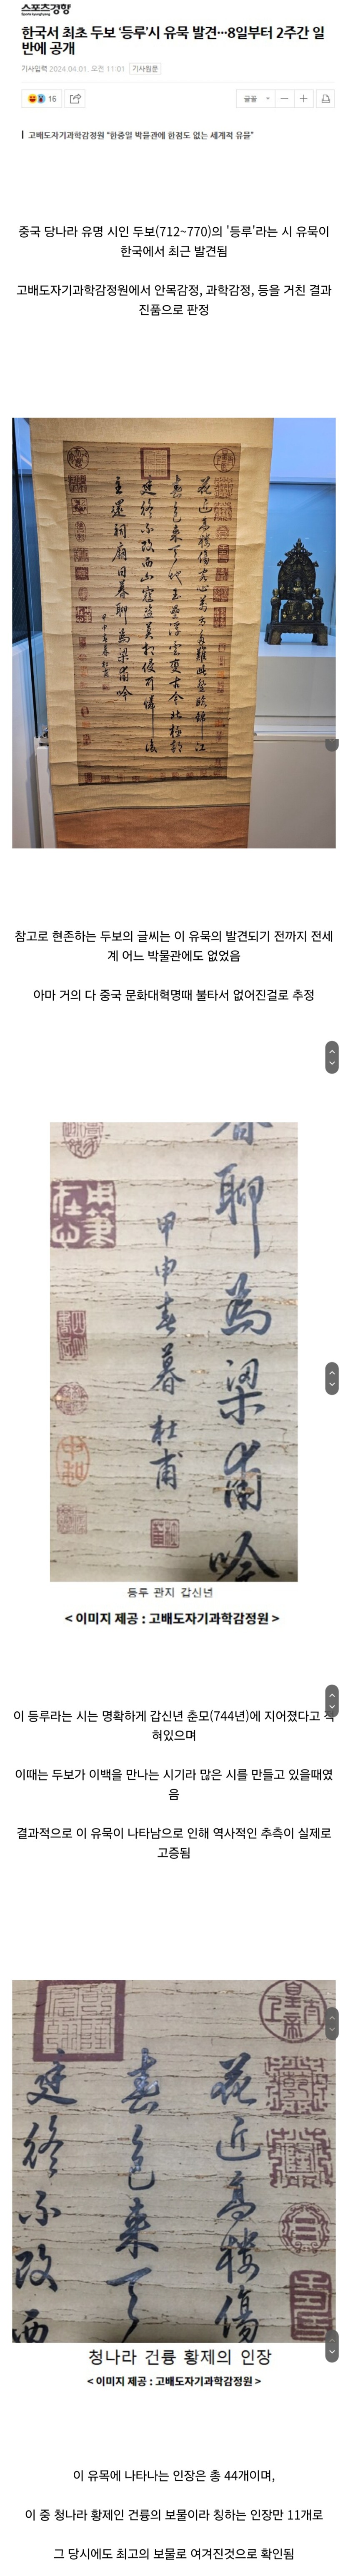 스포츠경향
한국서 최초 두보 '등루'시 유묵 발견…8일부터 2주간 일
반에 공개
기사입력 2024.04.01. 오전 11:01 기사원문
16
글꼴
고배도자기과학감정원 "한중일 박물관에 한점도 없는 세계적 유물"
중국 당나라 유명 시인 두보(712~770)의 '등루'라는 시 유묵이
한국에서 최근 발견됨
고배도자기과학감정원에서 안목감정, 과학감정, 등을 거친 결과
진품으로 판정
花近高樓傷客心萬方多難此登臨錦江
春色來天地玉壘浮雲變古今北極朝
廷終不改西山寇盜莫相侵可憐後
主還祠廟日暮聊為梁甫吟
甲申春暮杜甫
참고로 현존하는 두보의 글씨는 이 유묵의 발견되기 전까지 전세
계 어느 박물관에도 없었음
아마 거의 다 중국 문화대혁명때 불타서 없어진걸로 추정
春聊為梁甫吟
甲申春暮杜甫
등루 관지 갑신년
< 이미지 제공 : 고배도자기과학감정원 >
이 등루라는 시는 명확하게 갑신년 춘모(744년)에 지어졌다고 적
혀있으며
이때는 두보가 이백을 만나는 시기라 많은 시를 만들고 있을때였
음
결과적으로 이 유묵이 나타남으로 인해 역사적인 추측이 실제로
고증됨
花近高樓傷
春色來天
廷終不改西
청나라 건륭 황제의 인장
< 이미지 제공 : 고배도자기과학감정원 >
이 유목에 나타나는 인장은 총 44개이며,
이 중 청나라 황제인 건륭의 보물이라 칭하는 인장만 11개로
그 당시에도 최고의 보물로 여겨진것으로 확인됨